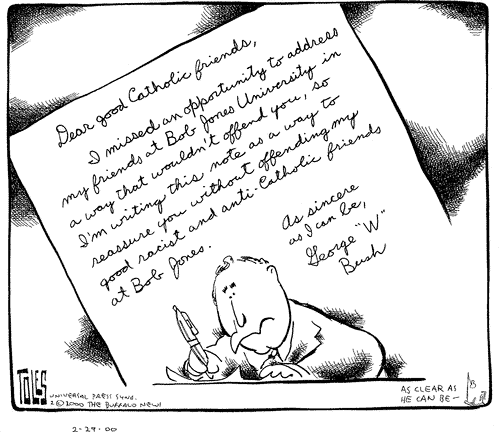 Dear good Catholic friends,
I missed an opportunity to address
my friends at Bob Jones University in
a way that wouldn't offend you, so
I'm writing this note as a way to
reassure you without offending my
good racist and anti-Catholic friends
at Bob Jones.
As sincere
as I can be,
George "W"
Bush
TOLES
UNIVERSAL PRESS SYND.
©2000 THE BUFFALO NEWS
AS CLEAR AS
HE CAN BE-
B
2-29-00